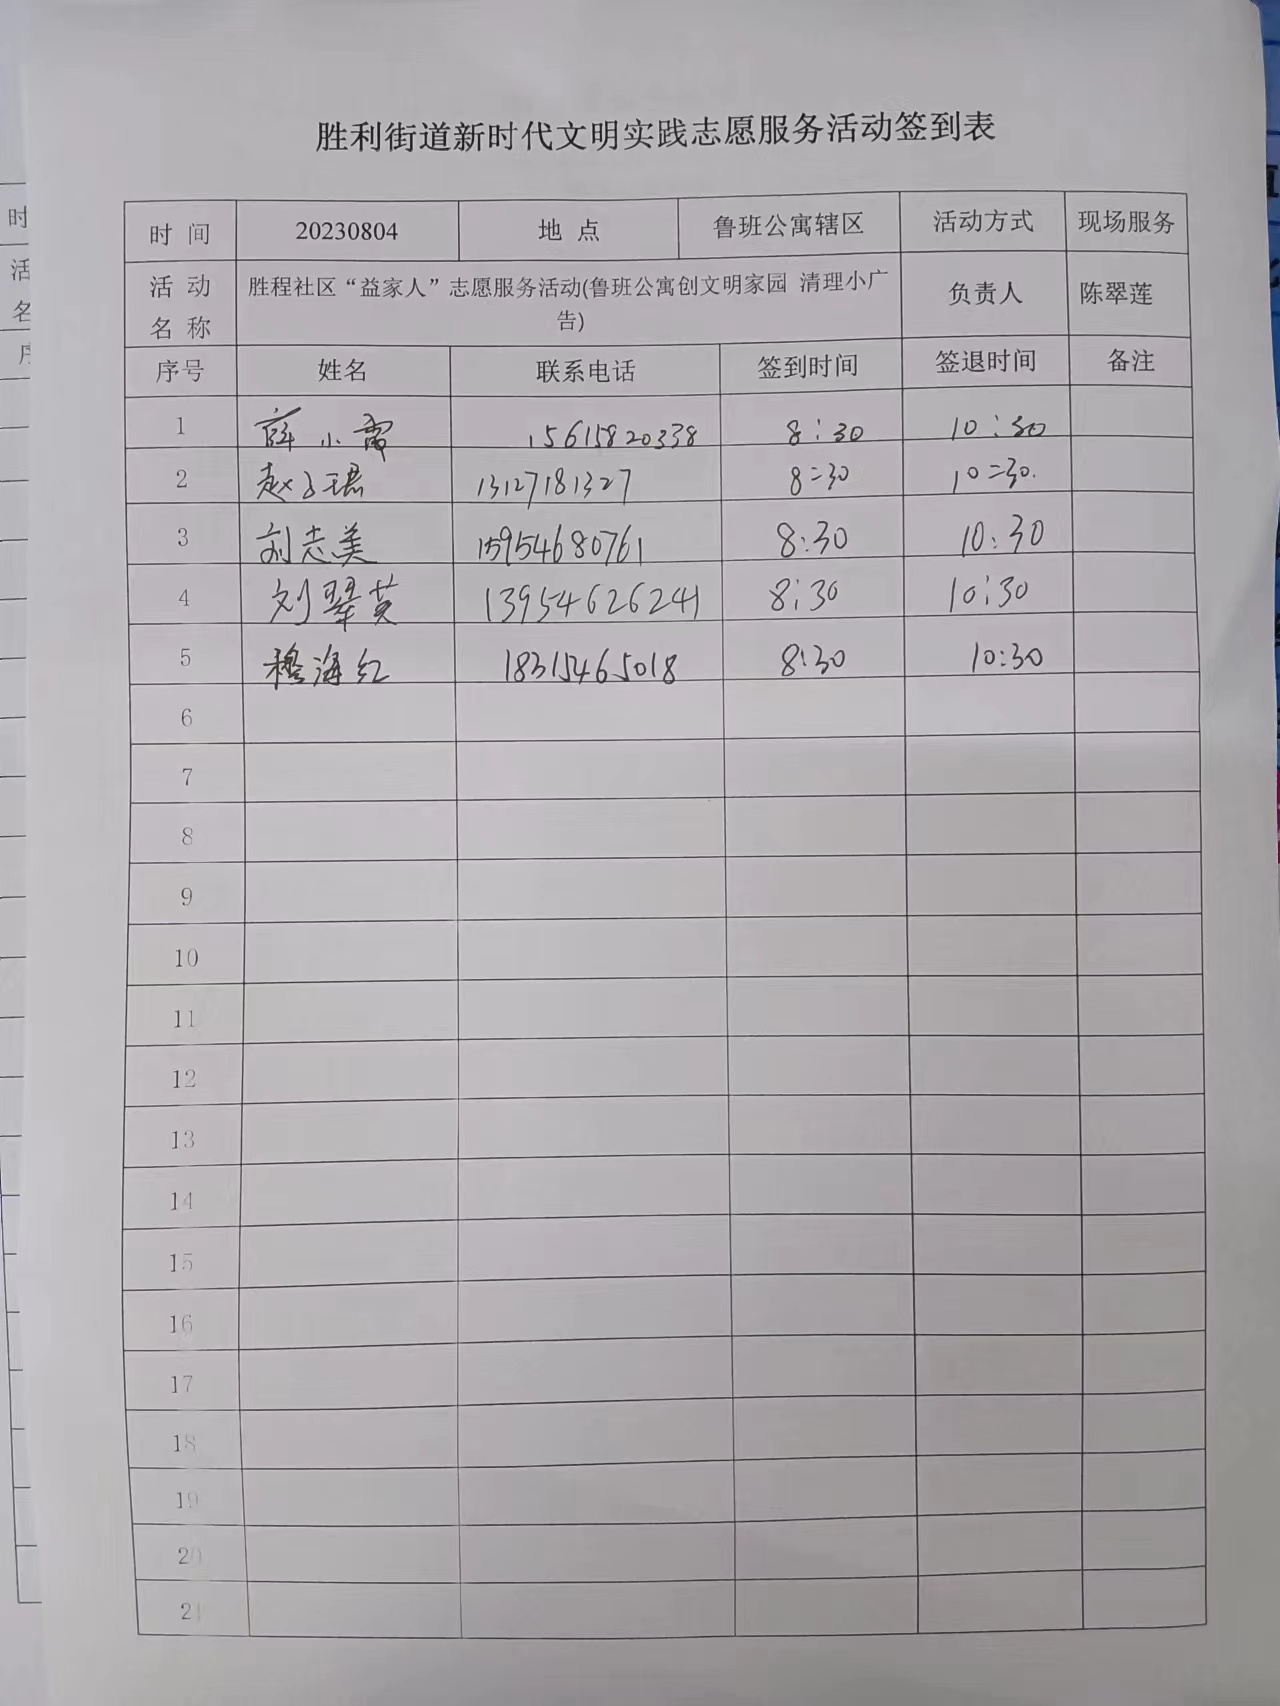 胜利街道新时代文明实践志愿服务活动签到表
时 间 20230804 地 点 鲁班公寓辖区 活动方式 现场服务
活 动 名 称 胜程社区“益家人”志愿服务活动(鲁班公寓创文明家园 清理小广告) 负责人 陈翠莲
序号 姓名 联系电话 签到时间 签退时间 备注
1 薛小霞 15615820338 8:30 10:30
2 赵子珺 13127181327 8:30 10:30.
3 刘志美 15954680761 8:30 10:30
4 刘翠英 13954626241 8:30 10:30
5 穆海红 18315465018 8:30 10:30
6
7
8
9
10
11
12
13
14
15
16
17
18
19
20
21
时
活
名
序